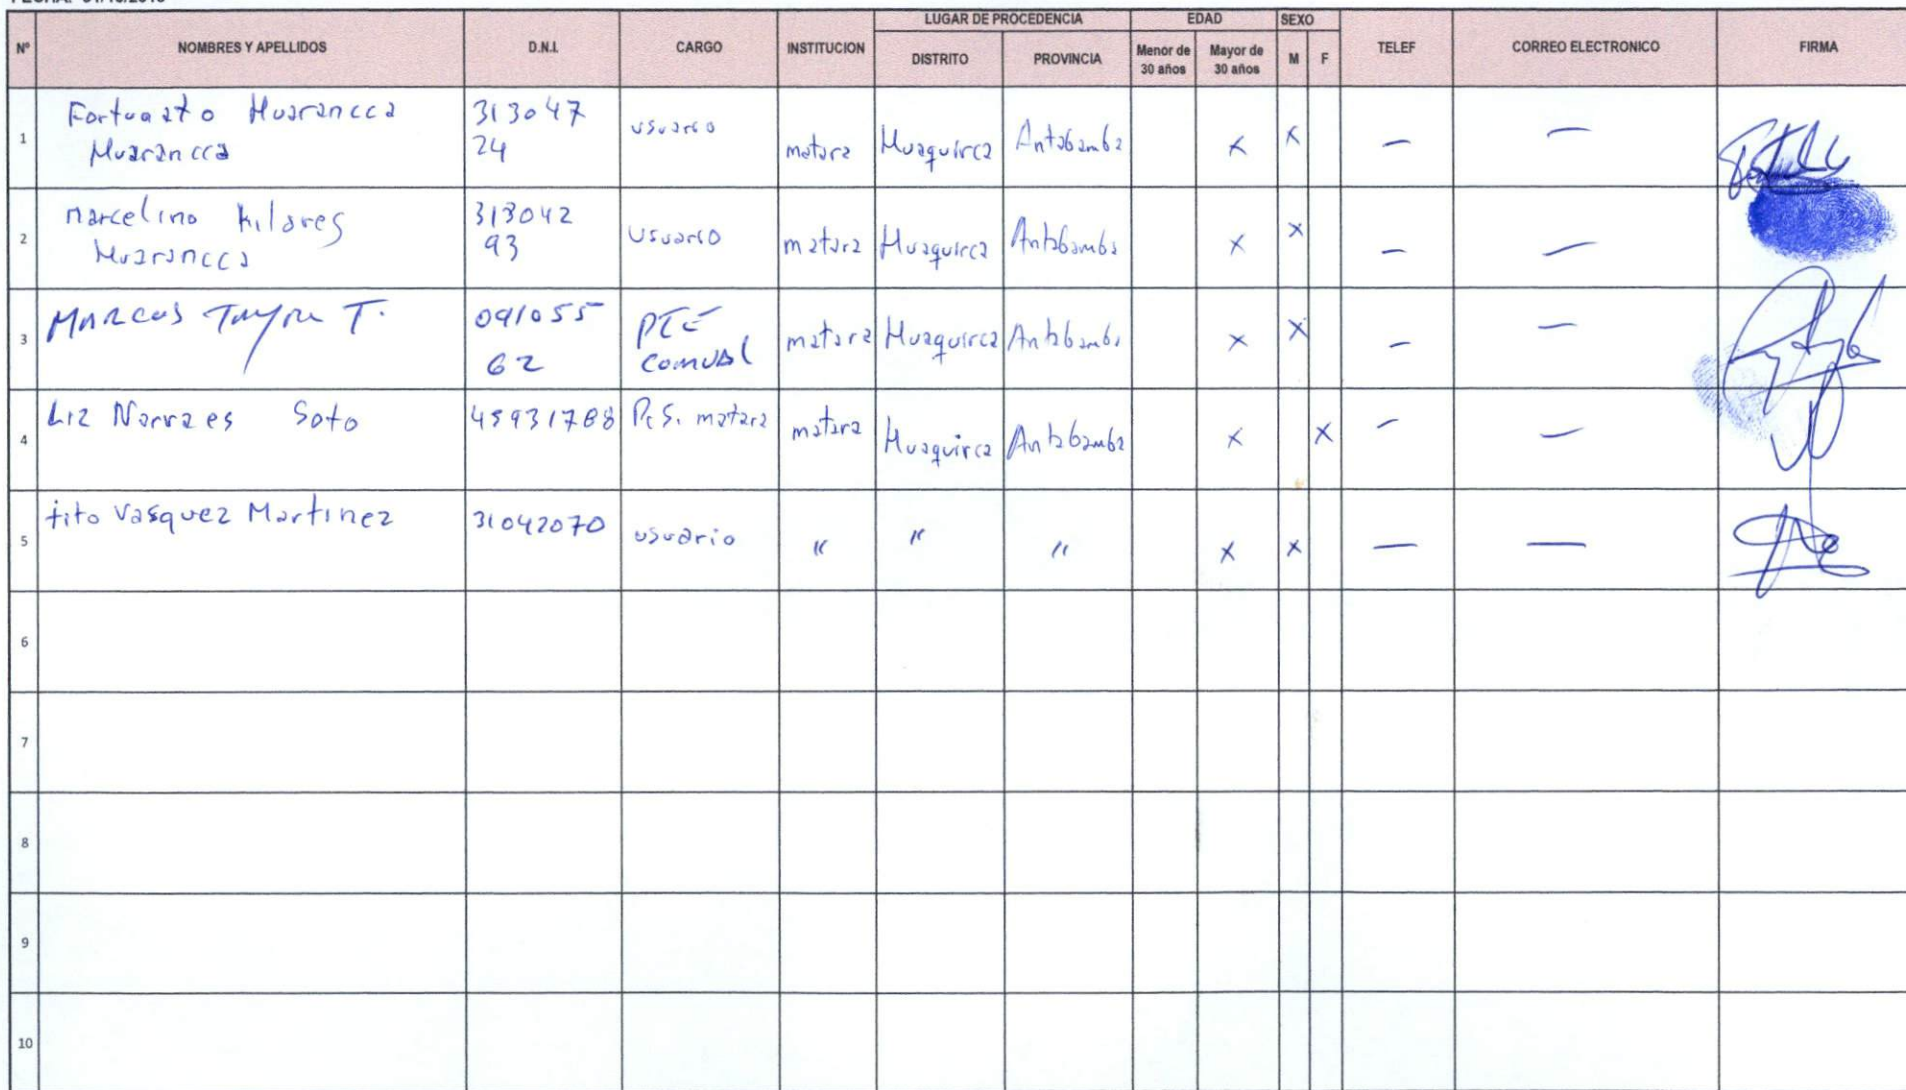 LUGAR DE PROCEDENCIA EDAD SEXO
Nº NOMBRES Y APELLIDOS D.N.I. CARGO INSTITUCION DISTRITO PROVINCIA Menor de 30 años Mayor de 30 años M F TELEF CORREO ELECTRONICO FIRMA
1 Fortunato Huarancca Huarancca 313047 24 usuario matara Huaquirca Antabamba x x — —
2 Marcelino Kilares Huarancca 318042 93 usuario matara Huaquirca Antabamba x x — —
3 Marcos T. 091055 62 PTE comunal matara Huaquirca Antabamba x x — —
4 Liz Narvaes Soto 45931788 matara matara Huaquirca Antabamba x x — —
5 tito Vasquez Martinez 31042070 usuario " " " x x — —
6
7
8
9
10